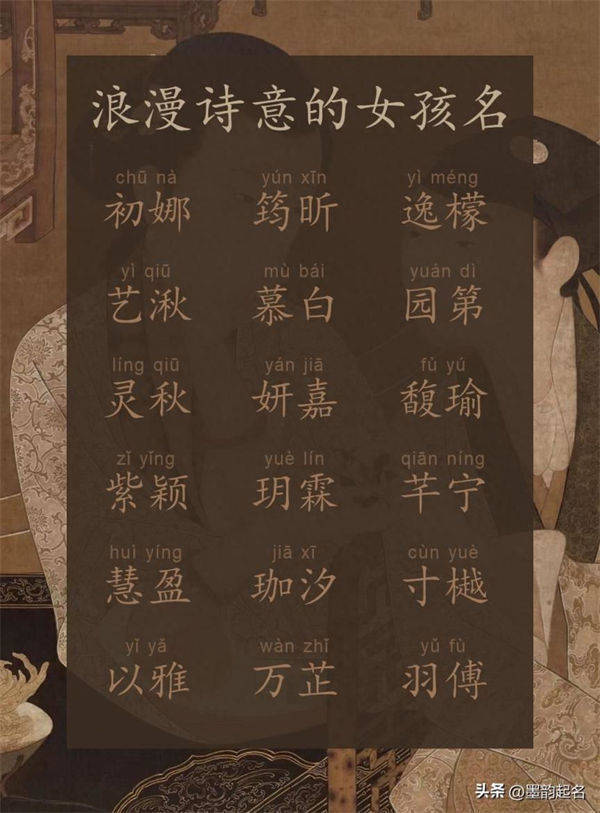 浪漫诗意的女孩名
chū nà yún xīn yì méng
初娜 筠昕 逸檬
yì qiū mù bái yuán dì
艺湫 慕白 园第
líng qiū yán jiā fǔ yú
灵秋 妍嘉 馥瑜
zǐ yǐng yuè lín qiān níng
紫颖 玥霖 芊宁
huì yíng jiā xī cùn yuè
慧盈 珈汐 寸樾
yǐ yǎ wàn zhǐ yǔ fù
以雅 万芷 羽傅
头条 @墨韵起名